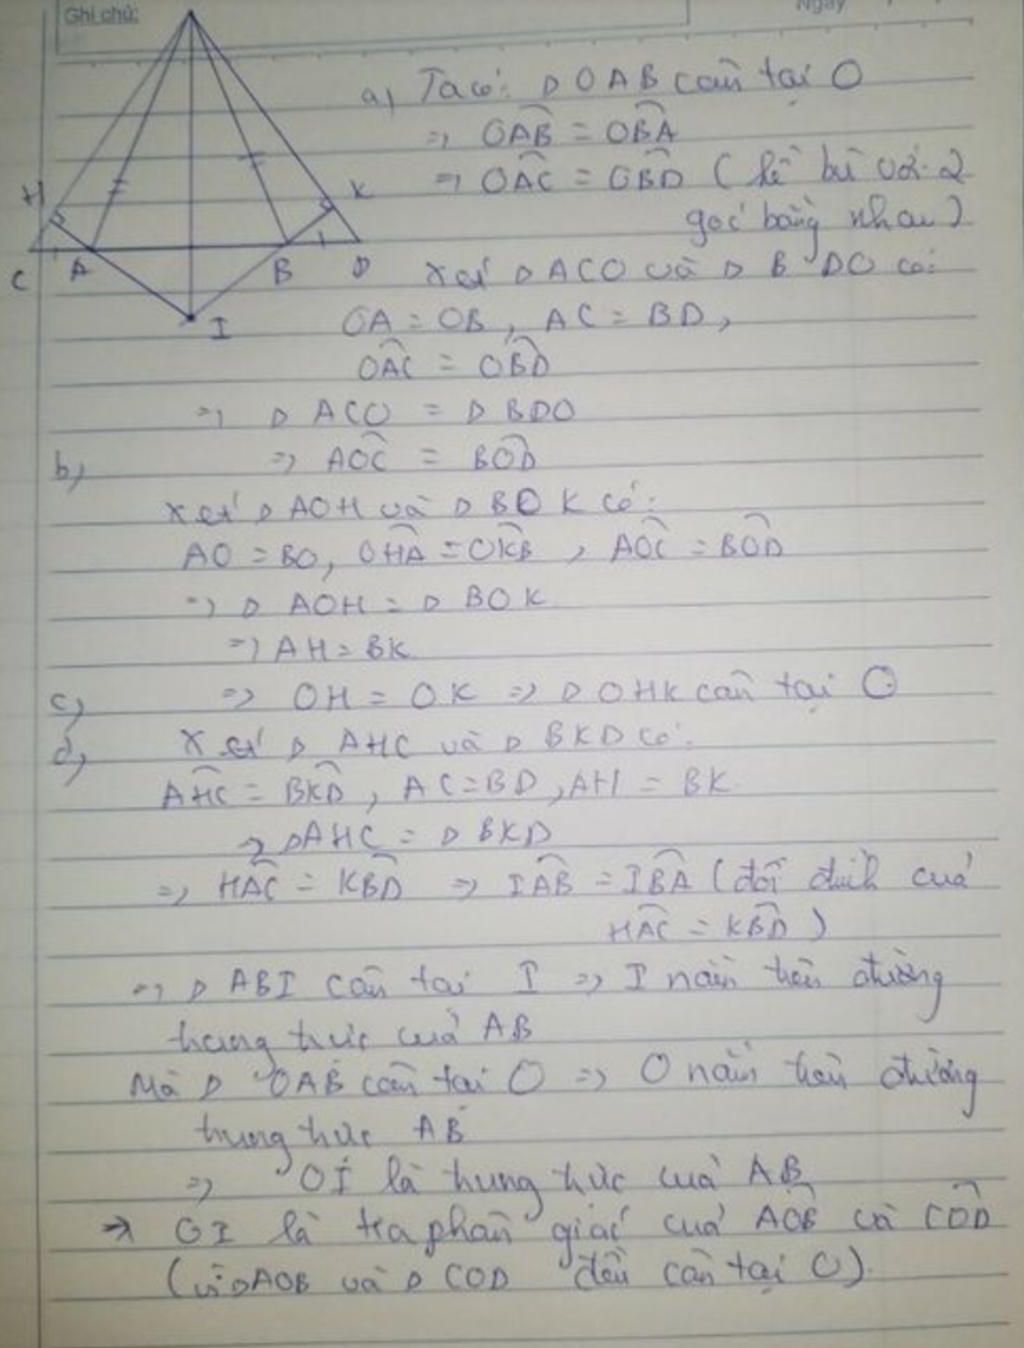 Ghi chú:
Ngày
H
K
C
A
B
D
I
a) Ta có: Δ OAB cân tại O
=> OAB = OBA
=> OAC = OBD ( kề bù với 2
góc bằng nhau)
Xét Δ ACO và Δ BDO có:
OA = OB, AC = BD,
OAC = OBD
=> Δ ACO = Δ BDO
=> AOC = BOD
b)
Xét Δ AOH và Δ BOK có:
AO = BO, OHA = OKB, AOC = BOD
=> Δ AOH = Δ BOK
=> AH = BK
c) => OH = OK => Δ OHK cân tại O
d) Xét Δ AHC và Δ BKD có:
AHC = BKD, AC = BD, AH = BK
=> Δ AHC = Δ BKD
=> HAC = KBD => IAB = IBA (đối đỉnh của
HAC = KBD)
=> Δ ABI cân tại I => I nằm trên đường
trung trực của AB
Mà Δ OAB cân tại O => O nằm trên đường
trung trực AB
=> OI là trung trực của AB
=> OI là tia phân giác của AOB và COD
(vì Δ AOB và Δ COD đều cân tại O).